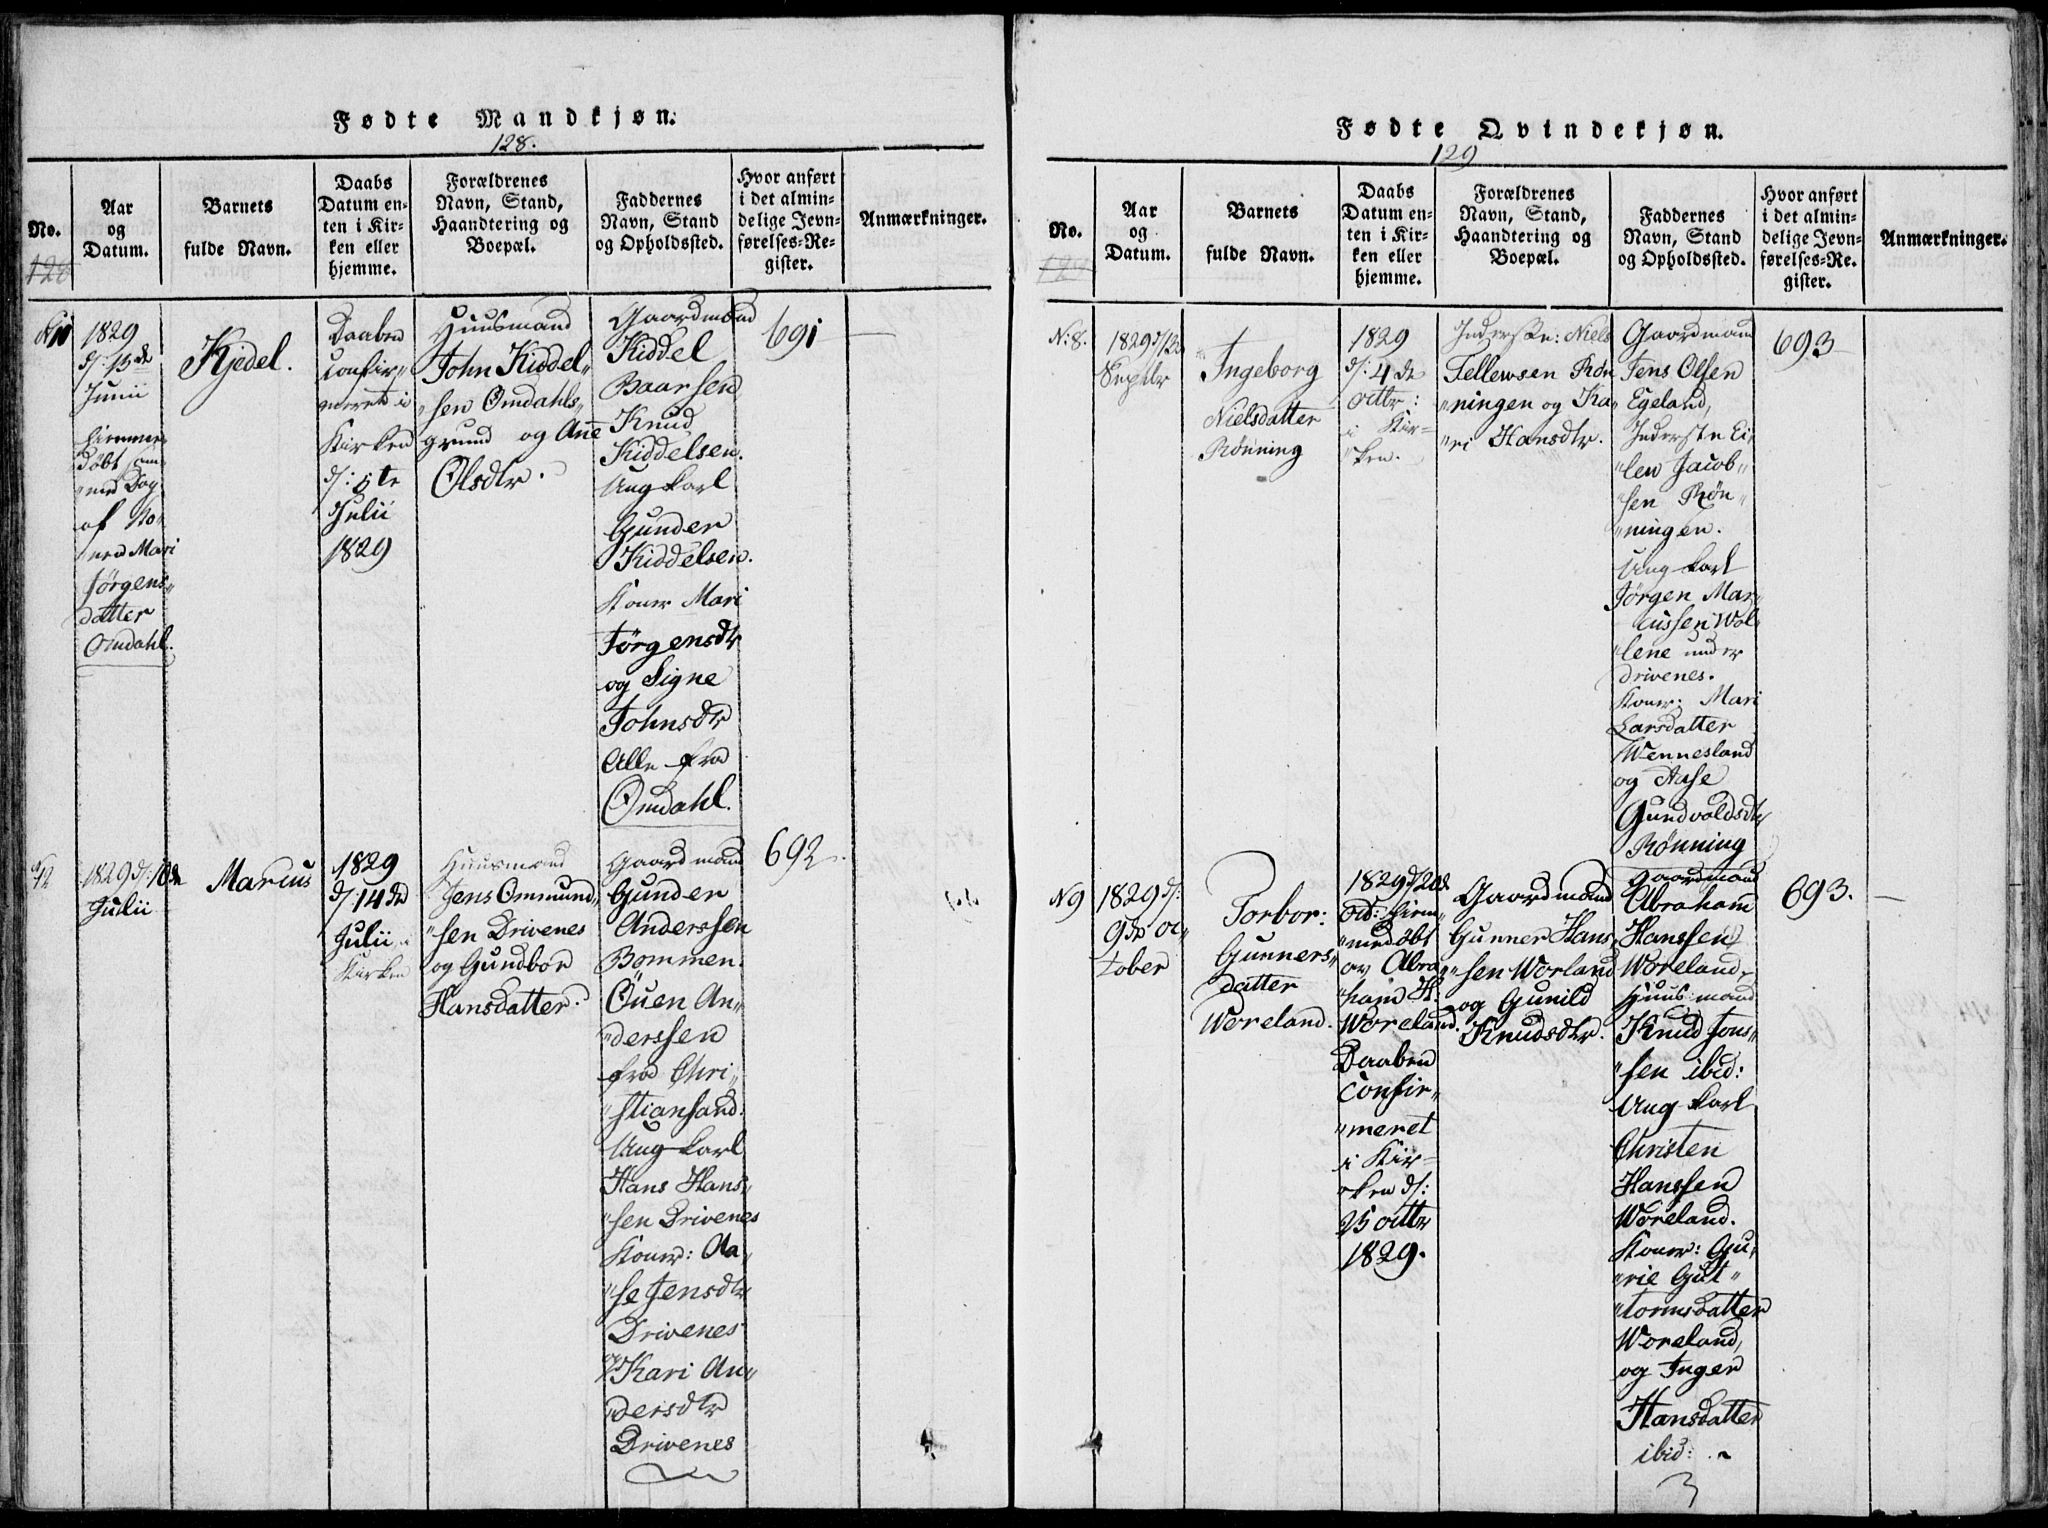 Fødte Mandkjøn.
128.
No.
Aar
og
Datum.
Barnets
fulde Navn.
Daabs
Datum en-
ten i Kir-
ken eller
hjemme.
Forældrenes
Navn, Stand,
Haandtering og
Boepæl.
Faddernes
Navn, Stand
og Opholdssted.
Hvor anført
i det almin-
delige Jevn-
førelses-Re-
gister.
Anmærkninger.
128
N 11
1829
d/: 13de
Junii
hiemme,,
døbt sam,,
,,me Dag
af Ko-
nen Mari
Jørgens,,
datter
Omdahl.
Kjedel.
Daaben
confir,,
meret i
Kirken
d/: 5te
Julii
1829
Huusmand
John Kiddel,,
,,sen Omdahls,,
grund og Ane
Olsdtr.
Gaardmand
Kiddel
Baarsen
Knud
Kiddelsen.
Ung karl
Gunder
Kiddelsen.
Koner Mari
Jørgensdtr
og Signe
Johnsdtr
Alle fra
Omdahl.
691
N 12
1829 d/: 10de
Julii
Marius
1829
d/: 14de
Julii i
Kirken
Huusmand
Jens Ommund,,
,,sen Drivenes
og Gundbor
Hansdatter.
Gaardmand
Gunder
Anderssen
Bommen.
Ouen An,,
,,derssen
fra Chri,,
,,stiansand.
Ung karl
Hans Hans,,
,,sen Drivenes
Koner: Aa,,
,,se Jensdtr
Drivenes
og Kari An,,
,,dersdtr
Drivenes
692.
Fødte Qvindekjøn.
129
No.
Aar
og
Datum.
Barnets
fulde Navn.
Daabs
Datum en-
ten i Kir-
ken eller
hjemme.
Forældrenes
Navn, Stand,
Haandtering og
Boepæl.
Faddernes
Navn, Stand
og Opholdssted.
Hvor anført
i det almin-
delige Jevn-
førelses-Re-
gister.
Anmærkninger.
N: 8.
1829 d/ 12
Septbr
Ingeborg
Nielsdatter
Rönning
1829
d/: 4de
octbr:
i Kir-
ken.
Inderste: Niels
Tellewsen Rön
,,ningen og Ka,,
,,ri Hansdtr.
Gaardmand
Jens Olsen
Egeland,
Inderste Ei,,
,,len Jacob,,
,,sen Røn,,
,,ningen.
Ung karl
Jörgen Mar,,
cussen Wol,,
,,lene under
Drivenes.
Koner: Mari
Larsdatter
Wennesland
og Aase
Gundvaldsdtr
Rönning
693
N 9
1829 d/:
9de oc,,
tober
Torbor:
Gunners,,
datter
Woreland.
1829 d/ 20de
oct: hiem,,
,,medøbt
av Abra,,
,,ham H.
Woreland.
Daaben
confir,,
,,meret
i Kir-
ken d/:
25 octbr
1829.
Gaardmand
Gunner Hans,,
,,sen Worland
og Gunild
Knudsdtr.
Gaardmand
Abraham
Hanssen
Woreland,
Huusmand
Knud Jons,,
,,sen ibid:
Ung karl
Christen
Hanssen
Woreland.
Koner: Gu,,
,,rie Gut,,
,,tormsdatter
Woreland,
og Inger
Hansdatter
ibid:
693.